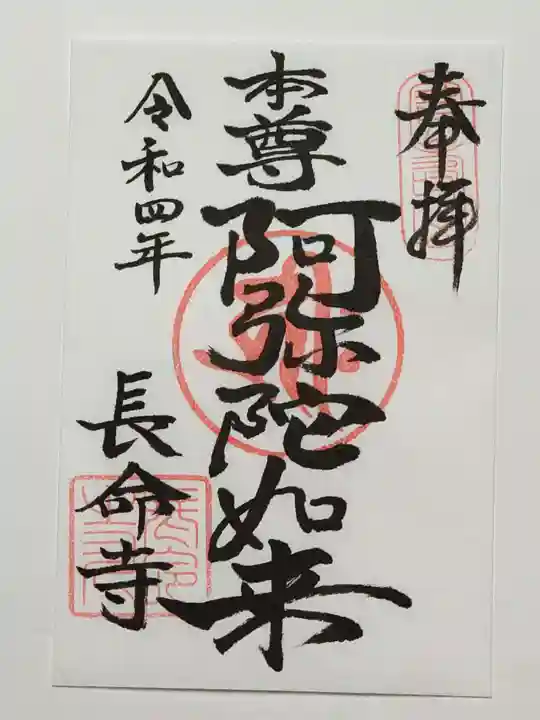 奉拝
本尊
阿弥陀如来
令和四年
長命寺